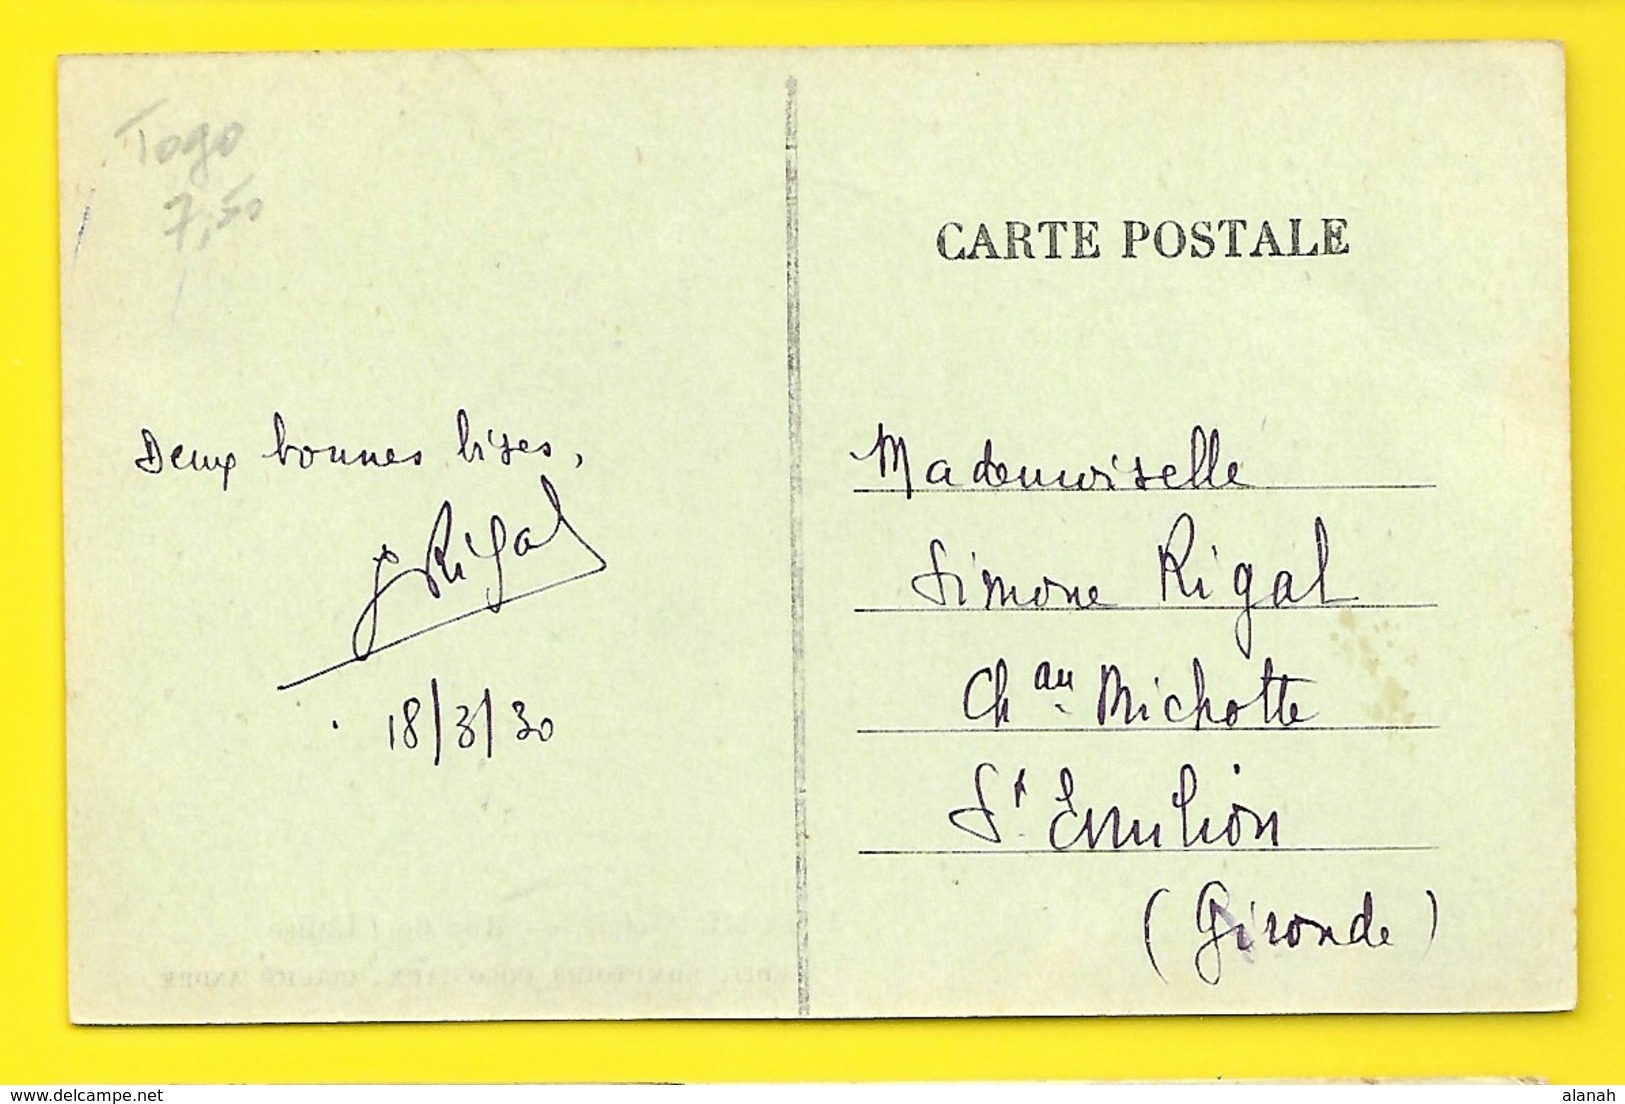 Togo
7,50
CARTE POSTALE
Deux bonnes bises,
Rigal
18/3/30
Mademoiselle
Simone Rigal
Chau Michotte
St Emilion
(Gironde)
alanah